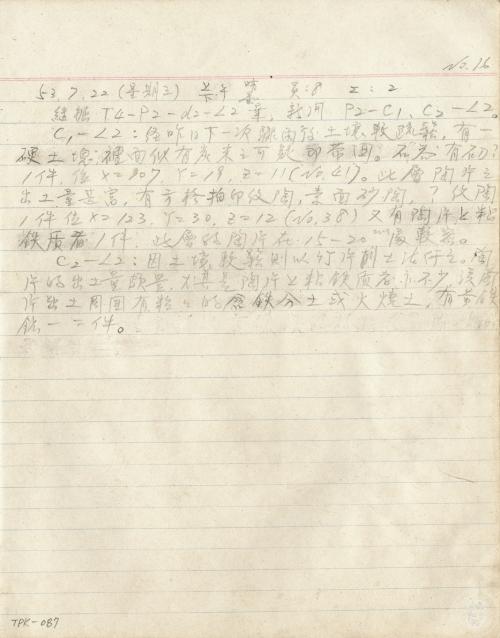 No. 16
53.7.22 (星期三) 上午 晴 員:8 工:2
繼掘 T4-P2-d2-L2 畢, 新開 P2-C1、C2-L2。
C1-L2:經昨日下一次 土壤較疏鬆, 有一
硬土塊裡面似有炭末之可疑 即帶回。石器有石刀?
1件, 位 X=207, Y=18, Z=11 (No.41)。此層陶片之
出土量甚富, 有方格拍印紋陶, 素面砂陶, ?紋陶
1件位 X=123, Y=30, Z=12 (No.38) 又有陶片上粘
鉄质者1件, 此層的陶片在15-20 cm 處較密。
C2-L2:因土壤較鬆則以竹片剖土法行之, 陶
片的出土量頗豐, 尤其是陶片上粘鉄质者亦不少, 該陶
片出土周圍有粒 的含鉄分土或火燒土, 有
一二件。
TPK-087